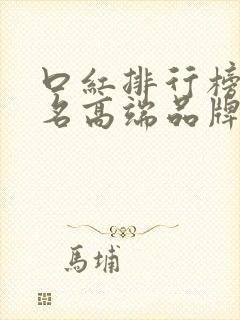 口红排行榜
名高端品牌
馬埔